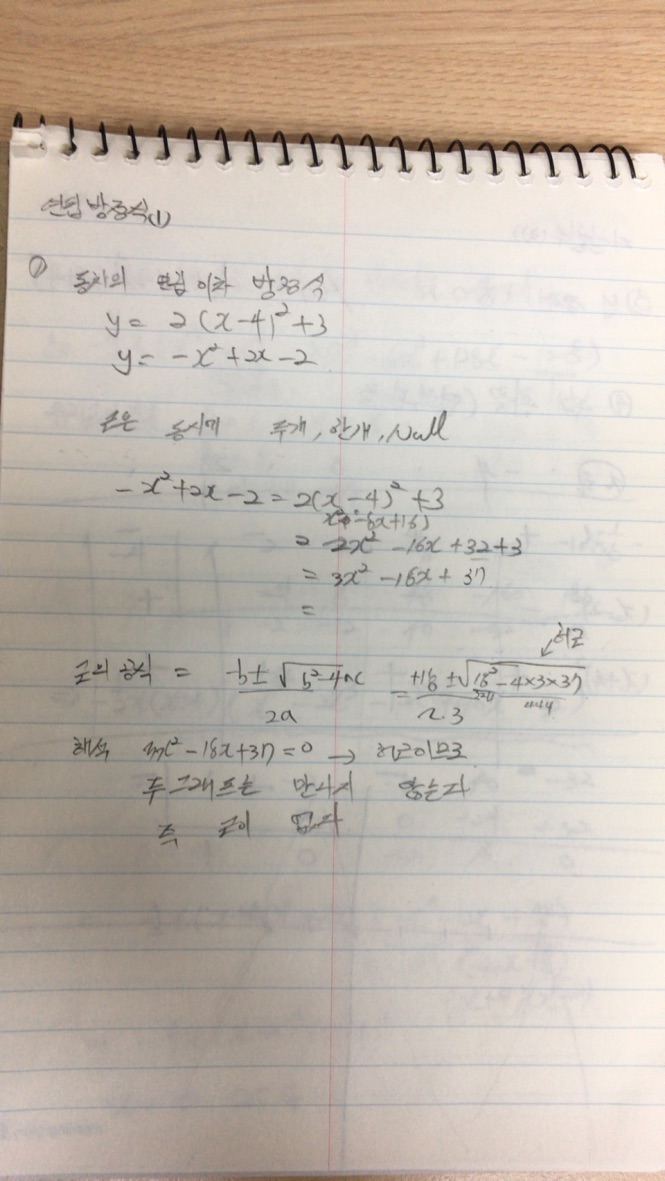 연립방정식(1)
① 동차의 연립 이차 방정식
y = 2(x-4)² + 3
y = -x² + 2x - 2
근은 동시에 두개, 한개, Null
-x² + 2x - 2 = 2(x-4)² + 3
x² - 8x + 16)
= 2x² - 16x + 32 + 3
= 3x² - 18x + 37
=
허근
근의 공식 = -b ± √b²-4ac / 2a = +18 ± √18² - 4×3×37 / 2·3
해석 3x² - 18x + 37 = 0 → 허근이므로
두 그래프는 만나지 않는다
즉 근이 없다